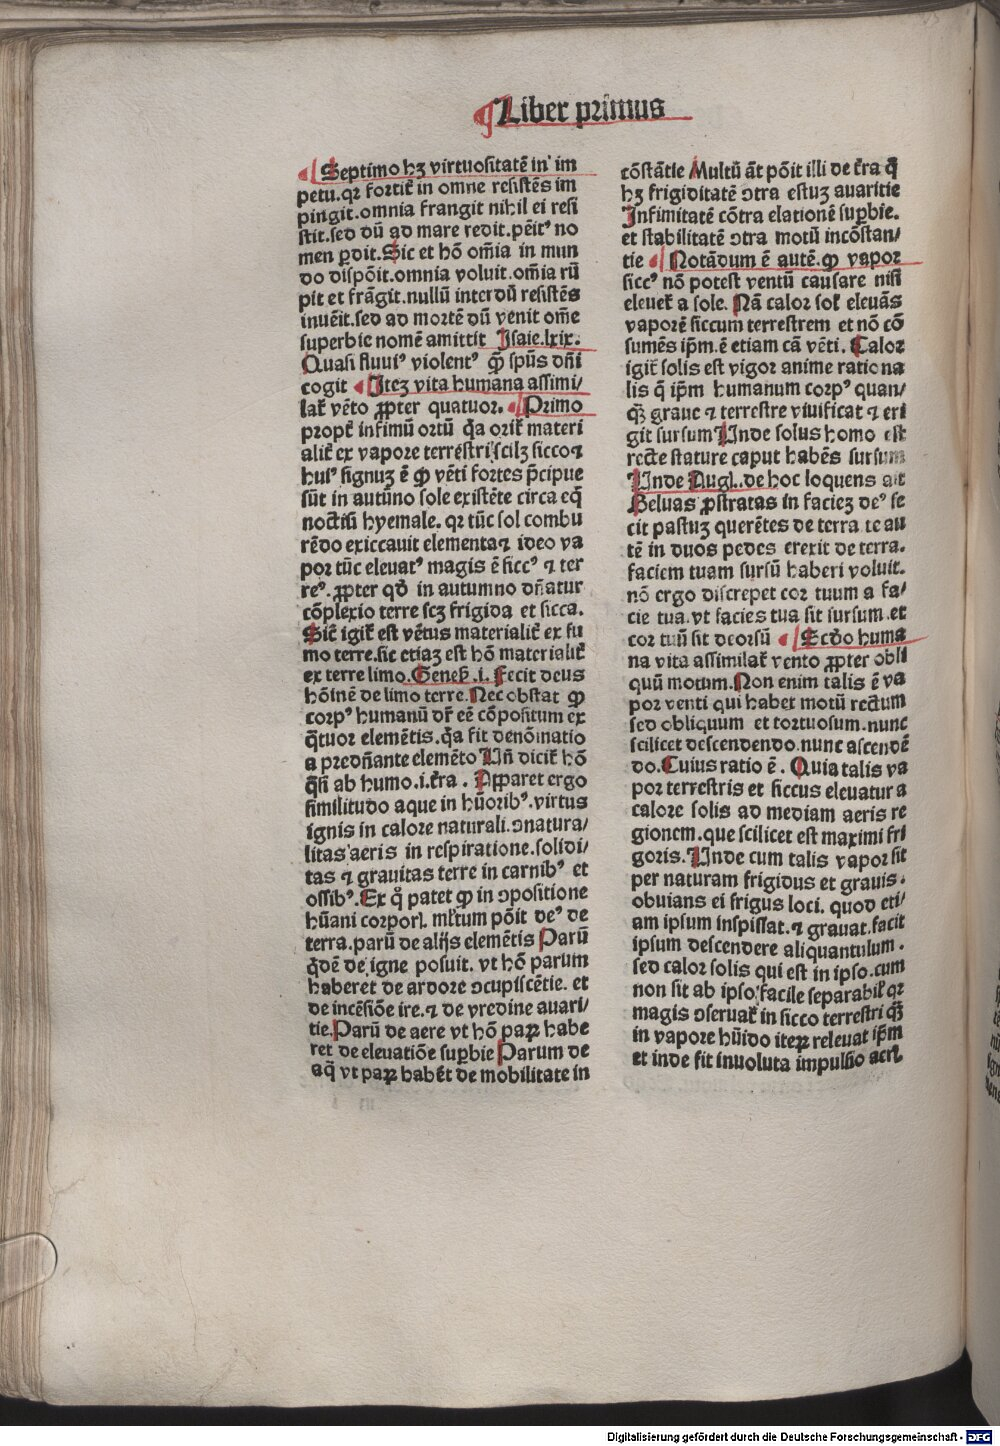 Liber primus
Septimo hꝫ virtuositatē in im
petu.qꝛ fortit̄ in omne resistēs im
pingit.omnia frangit nihil ei resi
stit.sed dū ad mare redit.ꝑēit' no
men ꝑdit.Sic et hō om̄ia in mun
do dispōit.omnia voluit.om̄ia rū
pit et frāgit.nullū interdū resistēs
inuēit.sed ad mortē dū venit om̄e
superbie nomē amittit Isaie.lxix.
Quasi fluui⁹ violent⁹ q̄ſ sp̄us dn̄i
cogit Iteꝫ vita humana assimi/
lat̄ vēto ꝓpter quatuor. Primo
propt̄ infimū ortū q̄a orit̄ materi
alit̄ ex vapore terrēstri scilꝫ siccoꝛ
hui⁹ signuꝫ ē ꝙ vēti fortes p̄cipue
sūt in autūno sole existēte circa eq̄
noctiū hyemale. qꝛ tūc sol combu
rēdo exiccauit elementaꝛ ideo va
por tūc eleuat⁹ magis ē sicc⁹ ⁊ ter
re⁹.ꝓpter qd̄ in autumno dn̄atur
cōplexio terre scꝫ frigida et sicca.
Sic̄ igit̄ est vētus materialit̄ ex fu
mo terre.sic etiaꝫ est hō materialit̄
ex terre limo.Geneẜ.i.Fecit deus
hōinē de limo terre.Nec obstat ꝙ
corp⁹ humanū dr̄ eē cōpositum ex
q̄tuor elemētis.q̄a fit denōinatio
a predn̄ante elemēto Un̄ dicit̄ hō
q̄si ab humo.i.t̄ra. Apparet ergo
similitudo aque in hūorib⁹.virtus
ignis in calore naturali.ↄnatura/
litas aeris in respiratione.solidi/
tas ⁊ grauitas terre in carnib⁹ et
ossib⁹.Ex q̊ patet ꝙ in ↄpositione
hūani corporꝭ. ml̄tum pōit de⁹ de
terra.parū de alijs elemētis Parū
q̄dē de igne posuit. vt hō parum
haberet de ardore ↄcupiscētie. et
de incēsiōe ire.⁊ de vredine auari/
tie.Parū de aere vt hō paꝝ habe
ret de eleuatiōe suꝑbie Parum de
aq̄ vt paꝝ habēt de mobilitate in
cōstātie Multū āt pōit illi de t̄ra q̄
hꝫ frigiditatē ↄtra estuꝫ auaritie
Infimitatē cōtra elationē suꝑbie.
et stabilitatē ↄtra motū incōstan/
tie Notādum ē autē.ꝙ vapor
sicc⁹ nō potest ventū causare nisi
eleuet̄ a sole. Nā calor solꝭ eleuās
vaporē siccum terrestrem et nō cō
sumēs ip̄m.ē etiam cā vēti. Calor
igit̄ solis est vigor anime rationa
lis q̄ ip̄m humanum corp⁹ quan/
q̄ꝫ graue ⁊ terrestre viuificat ⁊ eri
git sursum Unde solus homo est
recte stature caput habēs sursum
Unde Augꝭ.de hoc loquens ait
Beluas ꝓstratas in facieꝫ de⁹ fe
cit pastuꝫ querētes de terra te au
tē in duos pedes erexit de terra.
faciem tuam sursū haberi voluit.
nō ergo discrepet cor tuum a fa/
cie tua.vt facies tua sit sursum.et
cor tuū sit deorsū Scd̄o huma
na vita assimilat̄ vento ꝓpter obli
quū motum.Non enim talis ē va
por venti qui habet motū rectum
sed obliquum et tortuosum.nunc
scilicet descendendo.nunc ascendē
do.Cuius ratio ē. Quia talis va
por terrestris et siccus eleuatur a
calore solis ad mediam aeris re
gionem.que scilicet est maximi fri
goris.Unde cum talis vapor sit
per naturam frigidus et grauis.
obuians ei frigus loci. quod eti/
am ipsum inspissat.⁊ grauat.facit
ipsum descendere aliquantulum.
sed calor solis qui est in ipso.cum
non sit ab ipso facile separabilꝭ qꝛ
magis ↄseruat̄ in sicco terrestri q̄ꝫ
in vapore hūido iteꝝ releuat ip̄m
et inde fit inuoluta impulsio aerꝭ
Digitalisierung gefördert durch die Deutsche Forschungsgemeinschaft - DFG